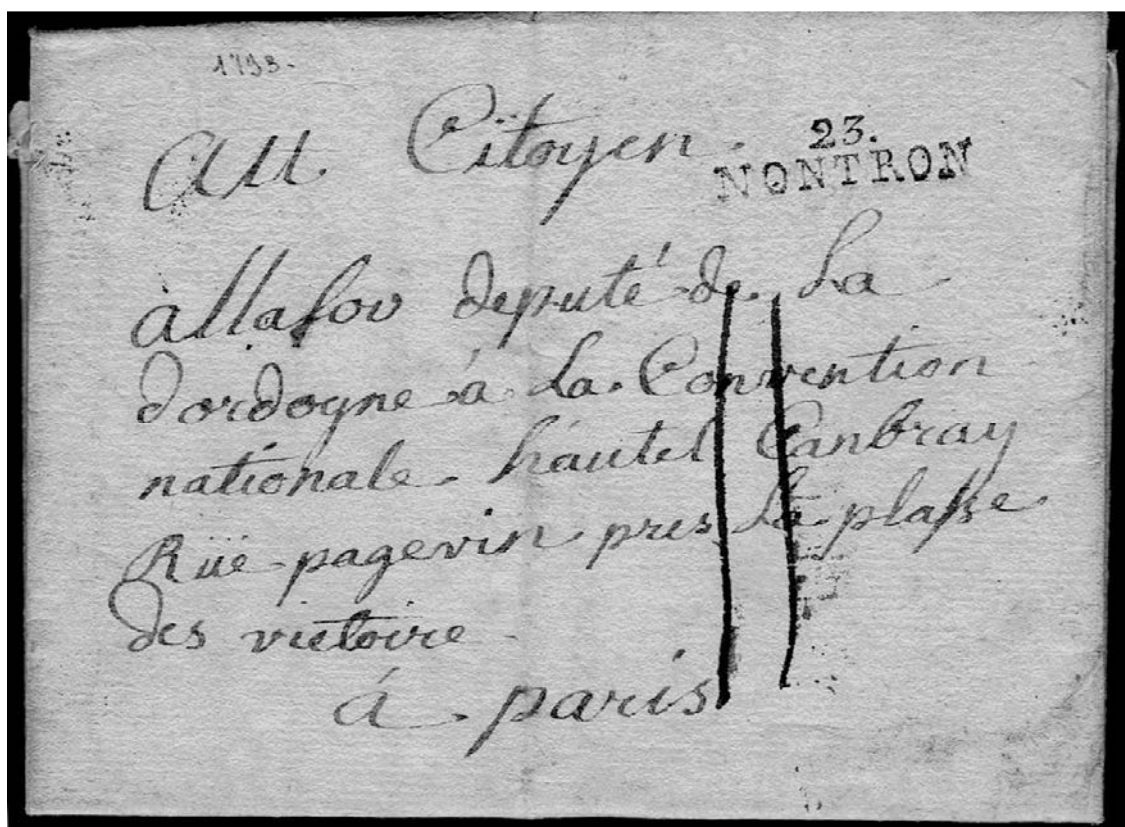 1793.
Au Citoyen.
23.
NONTRON
allafou deputé de la
dordogne á la Convention
nationale hautel Canbray
Rüe pagevin pres la plasse
des victoire
á paris